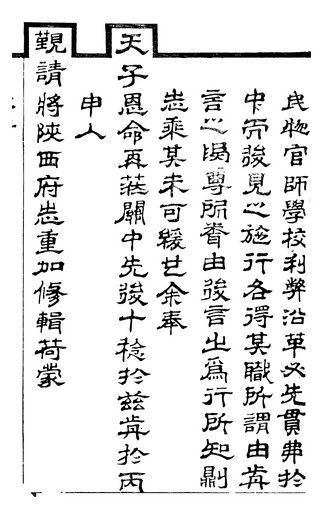 民物官師學校利弊沿革必先貫弗於
中而後見之施行各得其職所謂由前
言之爲尊所聞由後言之爲行所知則
志乘其未可緩也余奉
天子恩命再蒞關中先後十稔於兹前於丙
申入
覲請將陝西府志重加修輯荷蒙